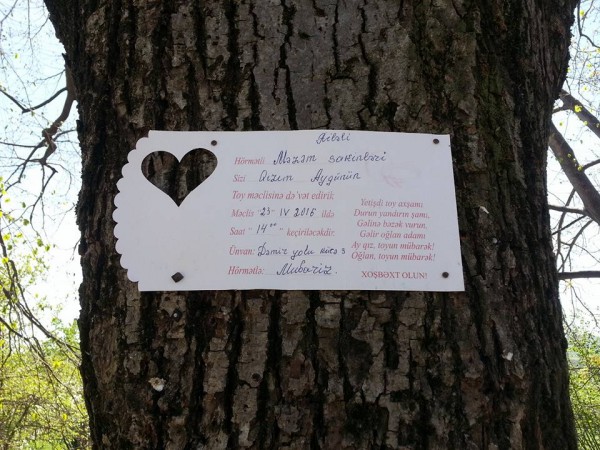 Ailəli
Hörmətli Mazam sakinləri
Sizi Qızım Aygünün
Toy məclisinə də'vət edirik
Məclis "23" IV 2016 ildə
Saat "14⁰⁰" keçiriləcəkdir.
Ünvan: Dəmir yolu küçə 3
Hörmətlə: Mübariz.
Yetişdi toy axşamı
Durun yandırın şamı,
Gəlinə bəzək vurun,
Gəlir oğlan adamı
Ay qız, toyun mübarək!
Oğlan, toyun mübarək!
XOŞBƏXT OLUN!